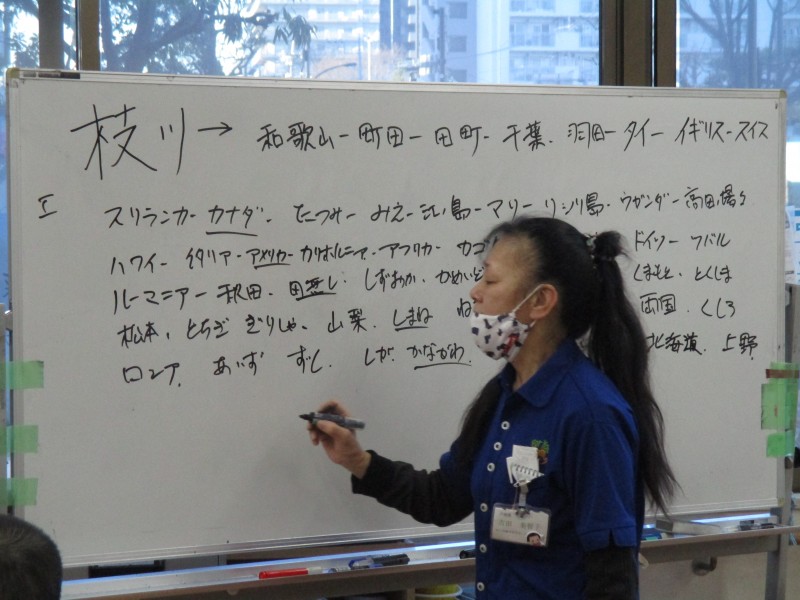 枝川→ 和歌山ー町田ー田町ー千葉、羽田ータイーイギリスースイス
スリランカーカナダー たつみー みえー江ノ島ーマリーリシリ島ーウガンダー高田ノ馬場
ハワイー イタリアーアメリカーカリホルニアーアフリカー ドイツー ツバル
ルーマニアー秋田ー田無し、しずおか、 しまもと、とくしま
松本、とちぎ ぎりしゃ、山梨、しまね 両国、くしろ
ロシア、あいず ずし、しが、かながわ、 北海道、上野